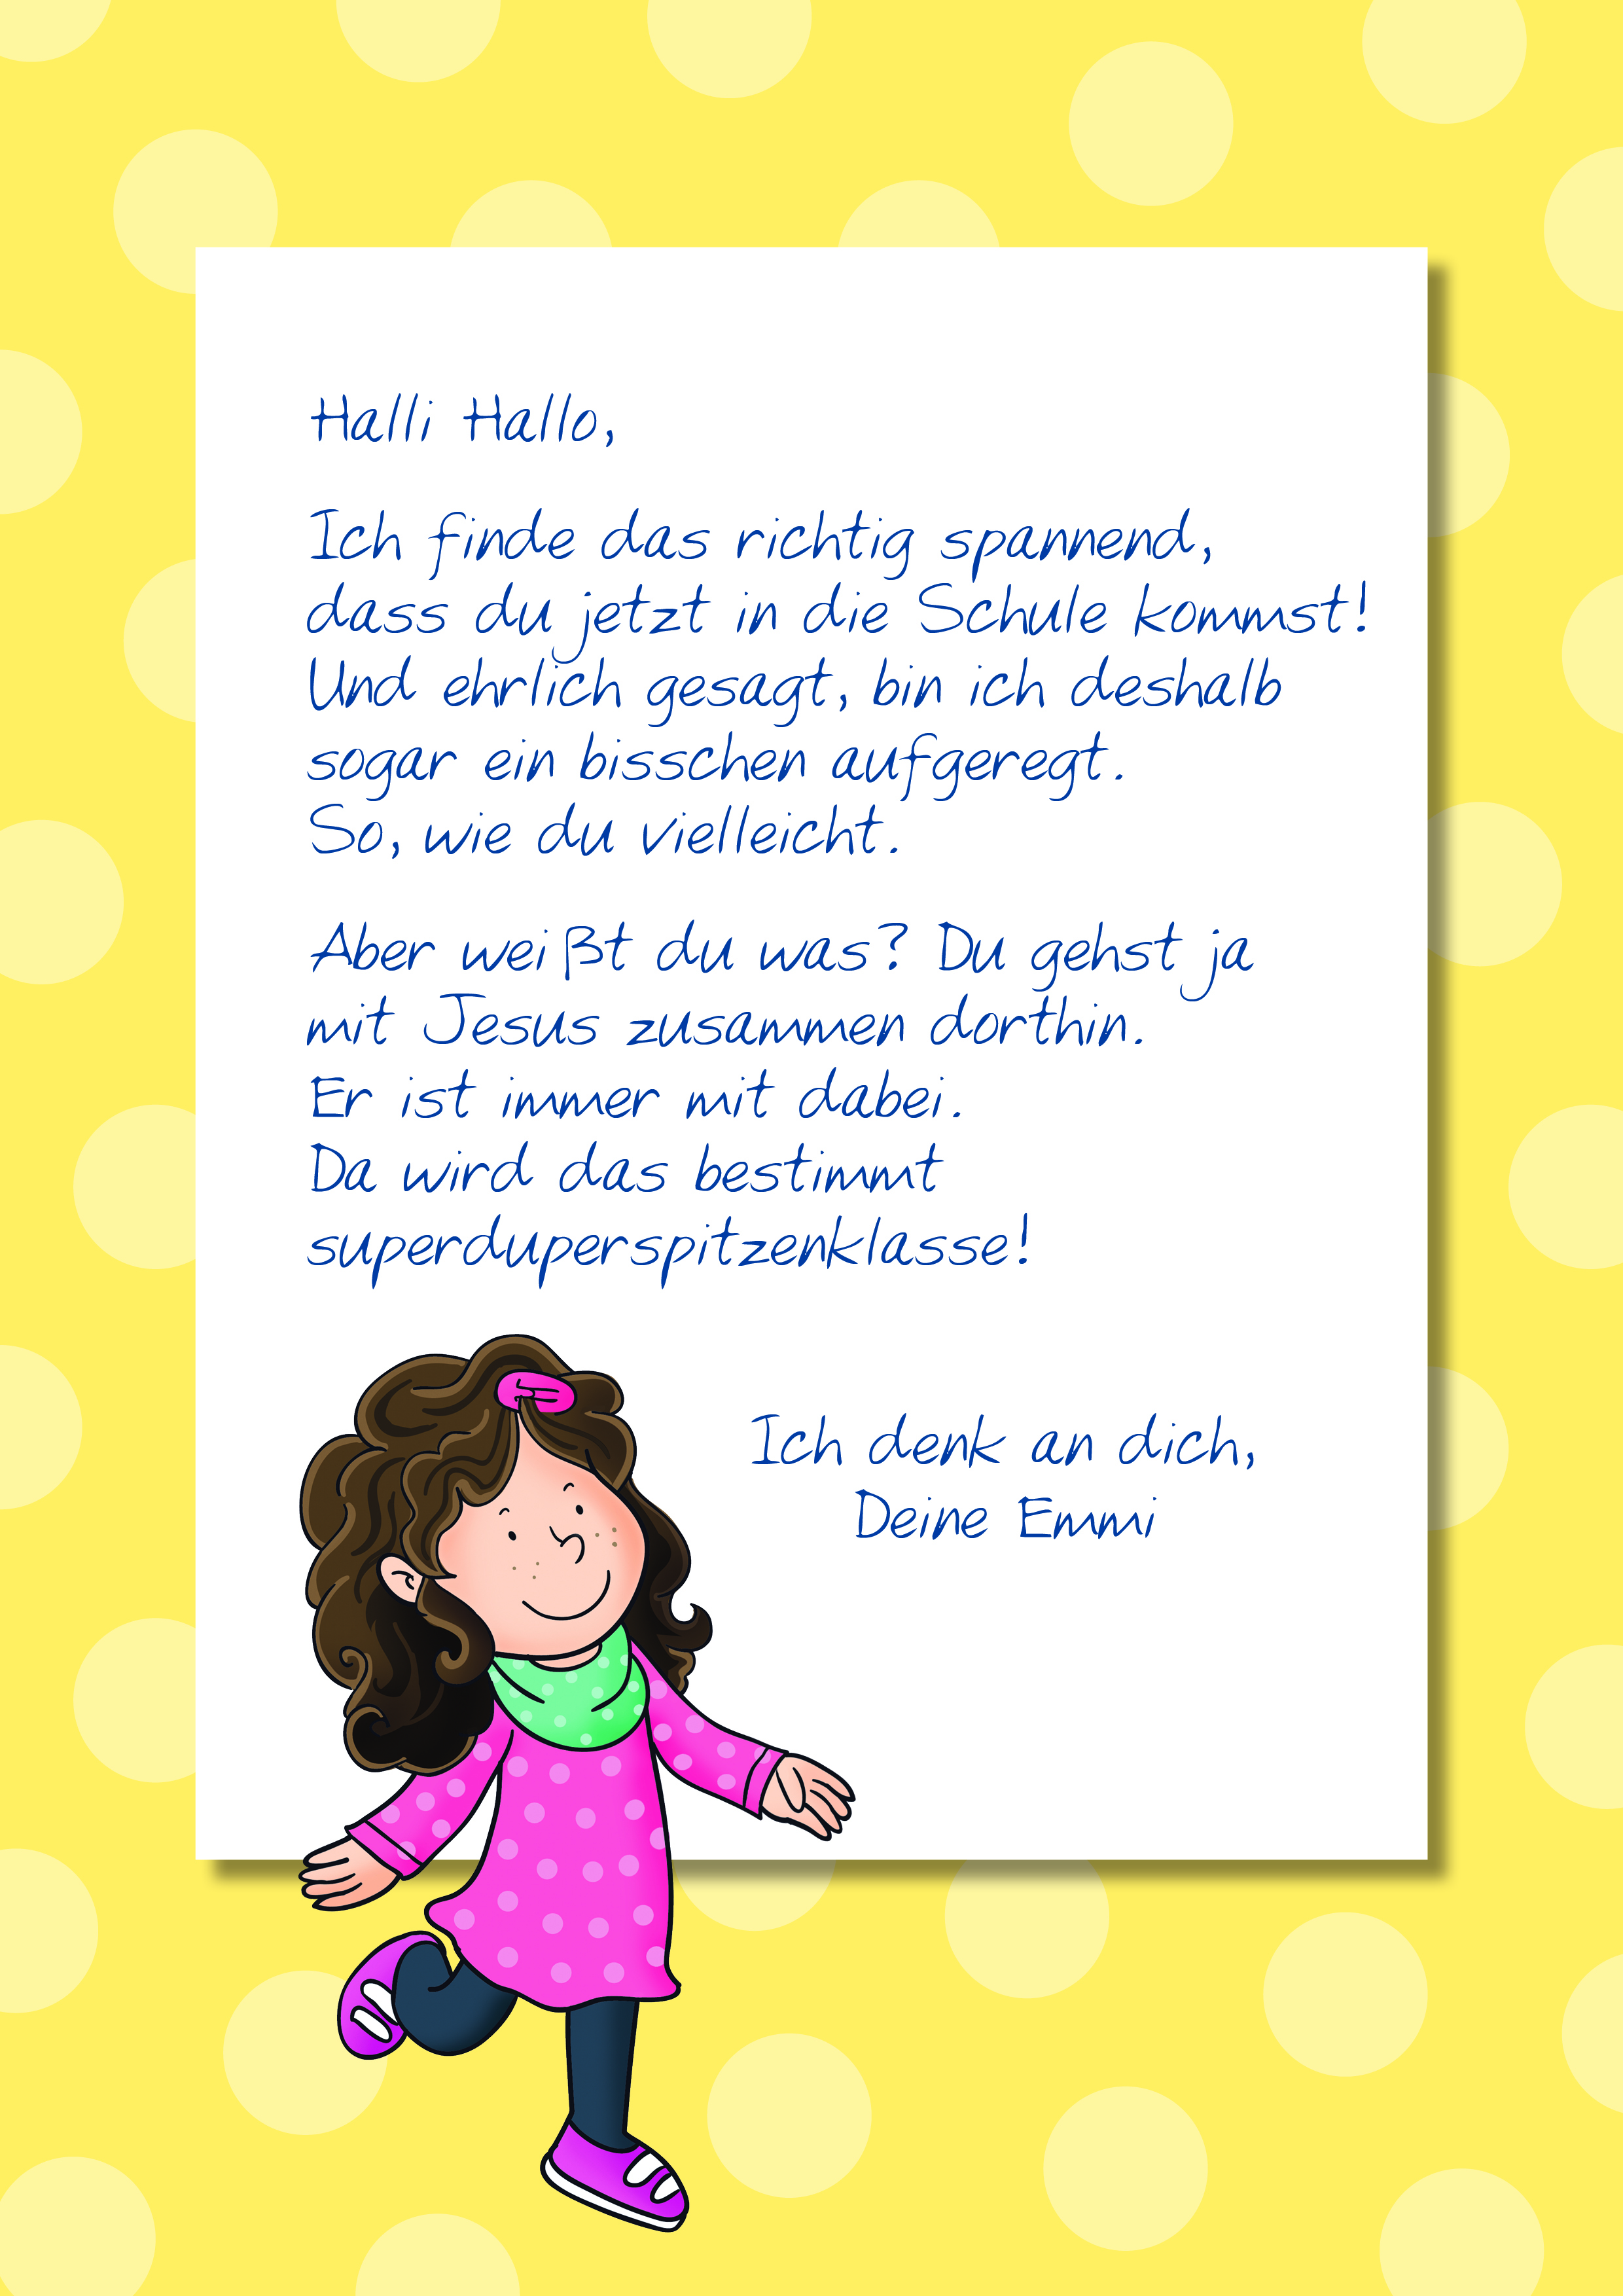 Halli Hallo,
Ich finde das richtig spannend,
dass du jetzt in die Schule kommst!
Und ehrlich gesagt, bin ich deshalb
sogar ein bisschen aufgeregt.
So, wie du vielleicht.
Aber weißt du was? Du gehst ja
mit Jesus zusammen dorthin.
Er ist immer mit dabei.
Da wird das bestimmt
superduperspitzenklasse!
Ich denk an dich,
Deine Emmi